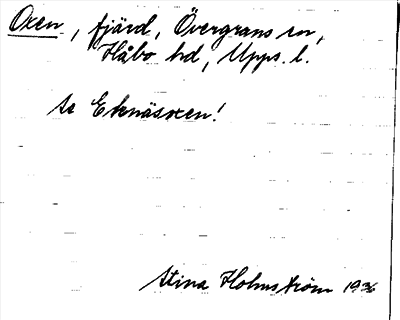 Oxen, fjärd, Övergrans sn,
Håbo hd, Upps. l.
se Eknäsoxen!
Stina Holmström 1936